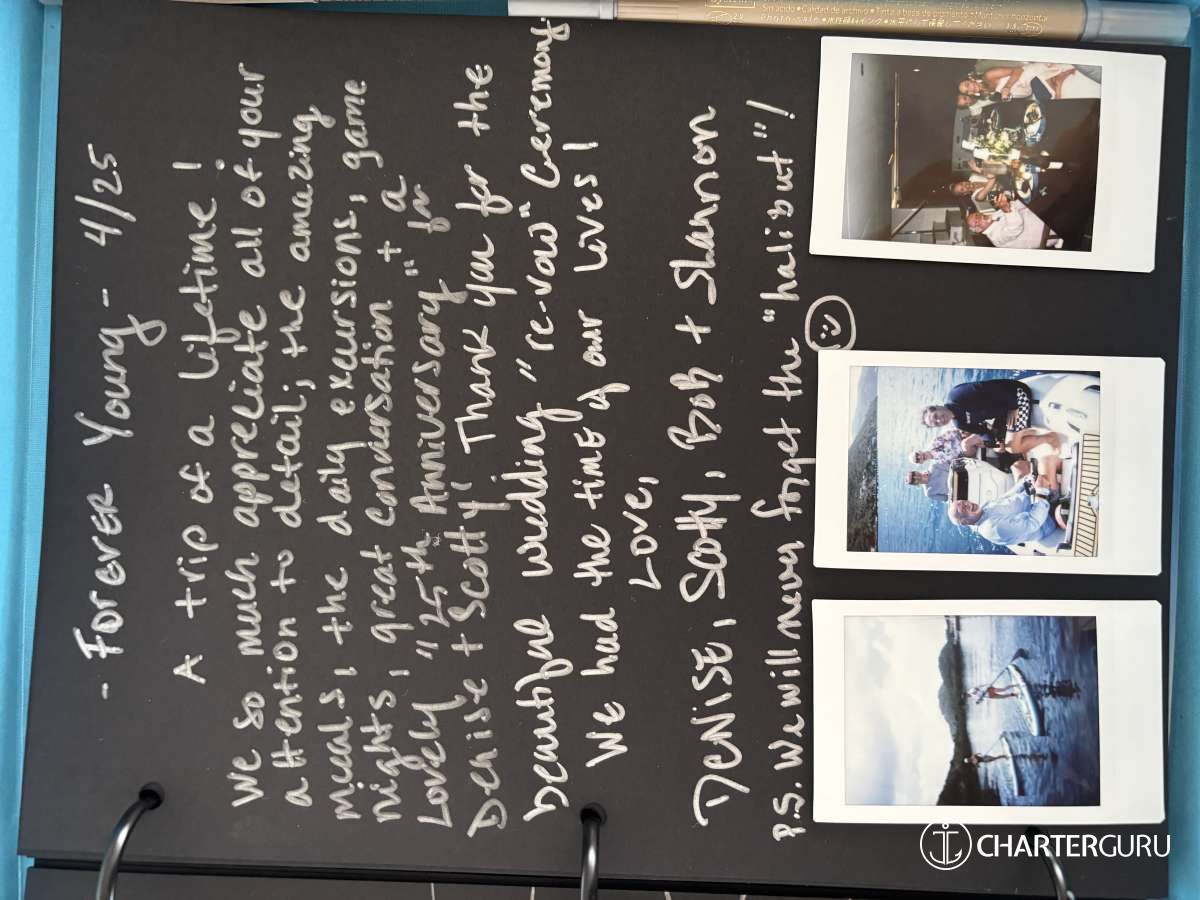 - Forever Young - 4/25
A trip of a lifetime!
We so much appreciate all of your
attention to detail; the amazing
meals, the daily excursions, game
nights, great conversation + a
Lovely "25th Anniversary" for
Denise + Scotty! Thank you for the
beautiful wedding "re-vow" Ceremony.
We had the time of our lives!
Love,
Denise, Scotty, Bob + Shannon
P.S. We will never forget the "halibut"!
CHARTERGURU